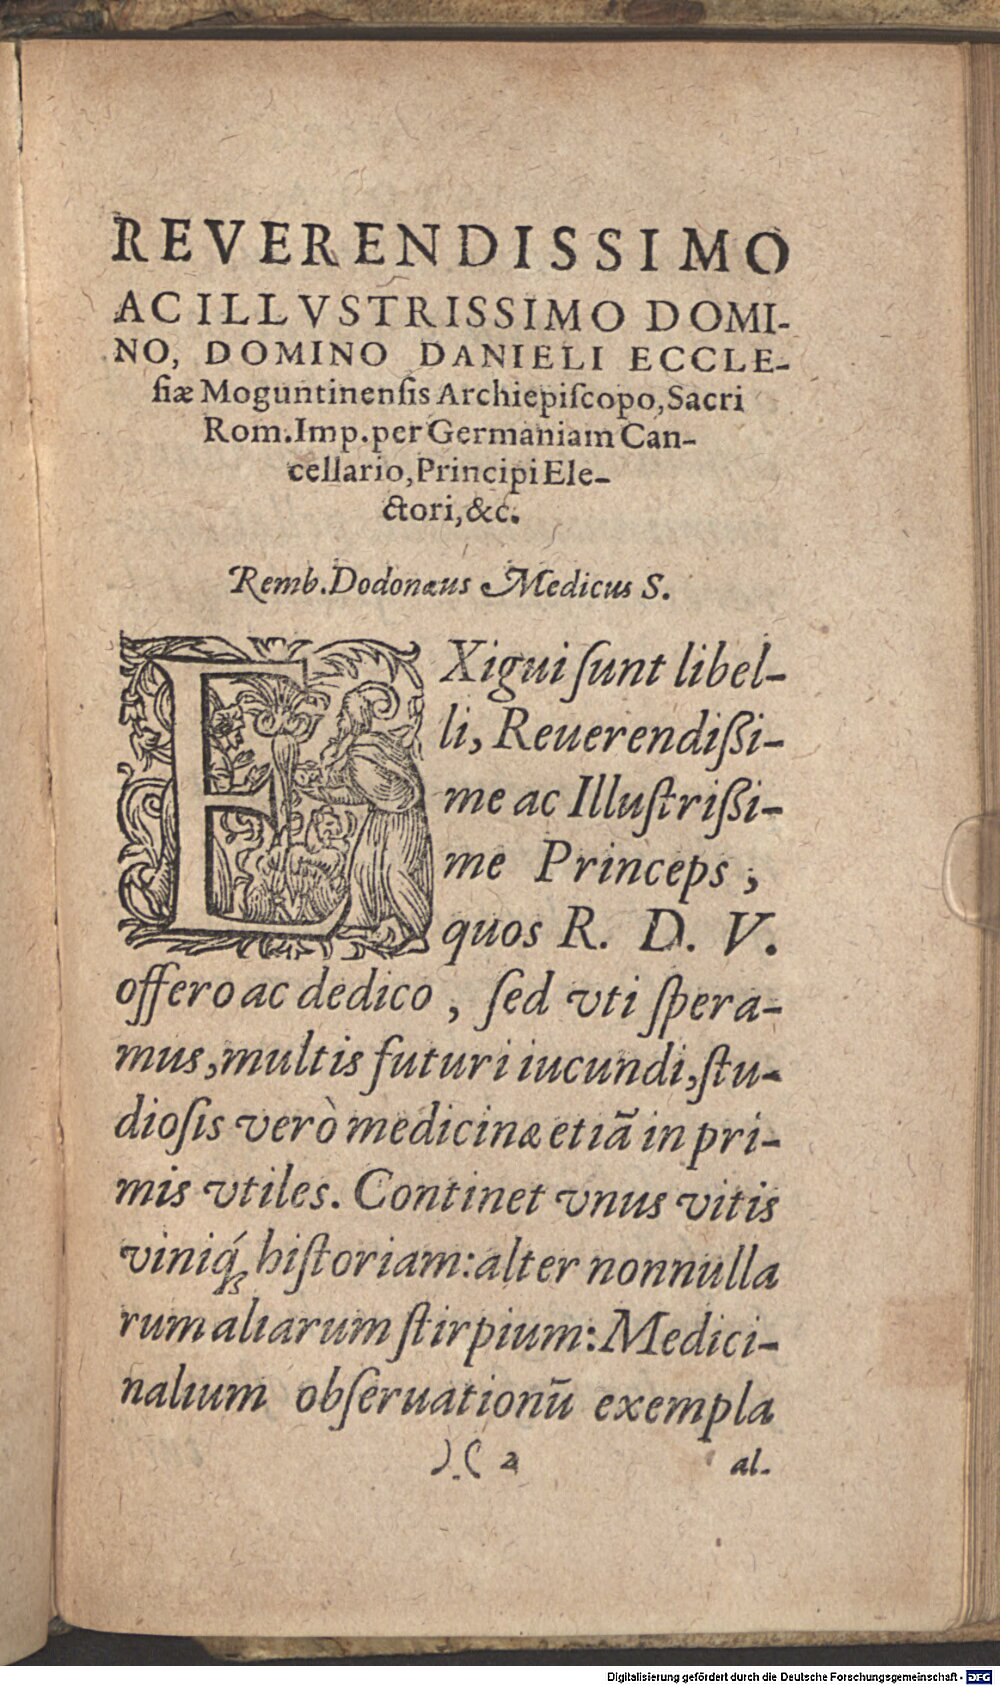 REVERENDISSIMO
AC ILLVSTRISSIMO DOMI-
NO, DOMINO DANIELI ECCLE-
ſiæ Moguntinenſis Archiepiſcopo, Sacri
Rom. Imp. per Germaniam Can-
cellario, Principi Ele-
ctori, &c.
Remb. Dodonæus Medicus S.
EXigui ſunt libel-
li, Reuerendißi-
me ac Illuſtrißi-
me Princeps,
quos R. D. V.
offero ac dedico, ſed vti ſpera-
mus, multis futuri iucundi, ſtu-
dioſis verò medicinæ etiã in pri-
mis vtiles. Continet vnus vitis
viniq́ꝫ hiſtoriam: alter nonnulla
rum aliarum ſtirpium: Medici-
nalium obſeruationũ exempla
):( 2 al-
Digitalisierung gefördert durch die Deutsche Forschungsgemeinschaft - DFG